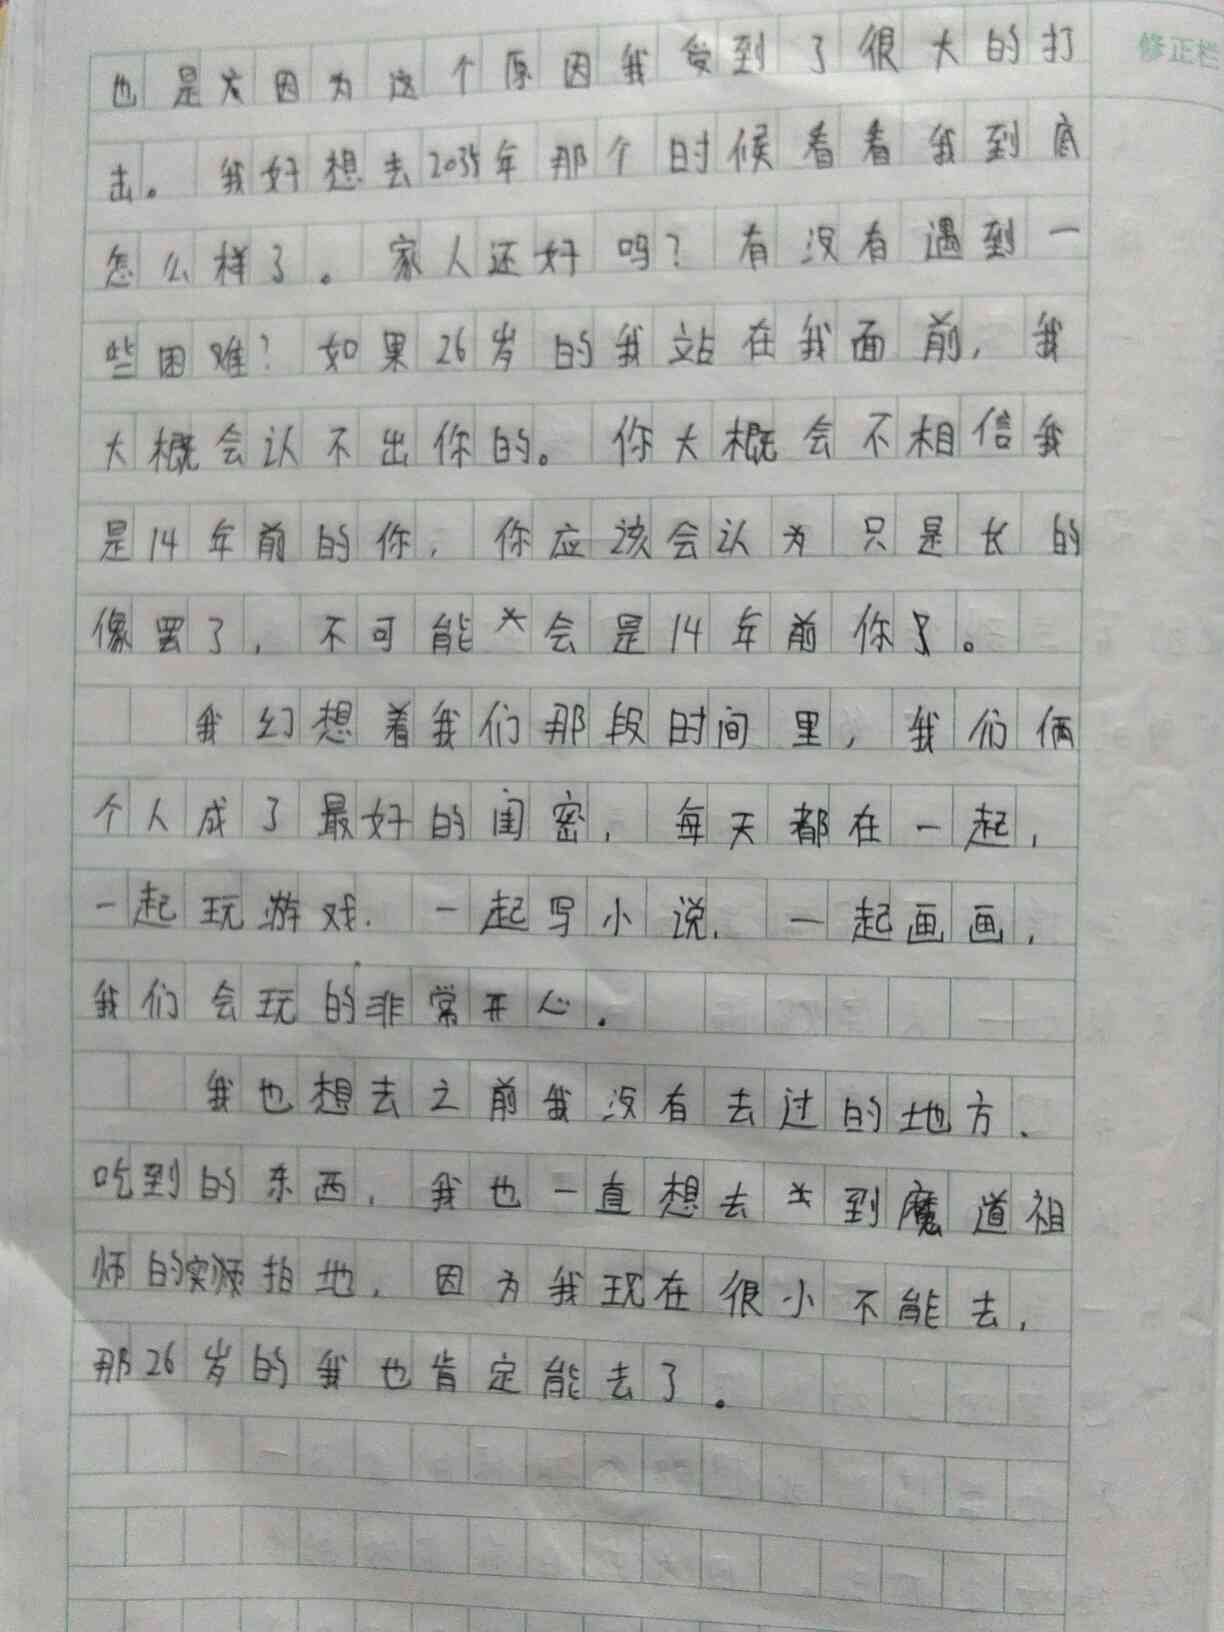 修正栏
也是因为这个原因我受到了很大的打
击。我好想去2035年那个时候看看我到底
怎么样了。家人还好吗？有没有遇到一
些困难？如果26岁的我站在我面前，我
大概会认不出你的。你大概会不相信我
是14年前的你，你应该会认为只是长的
像罢了，不可能会是14年前你。
我幻想着我们那段时间里，我们俩
个人成了最好的闺密，每天都在一起，
一起玩游戏．一起写小说．一起画画，
我们会玩的非常开心．
我也想去之前我没有去过的地方、
吃到的东西，我也一直想去到魔道祖
师的拍地，因为我现在很小不能去，
那26岁的我也肯定能去了。